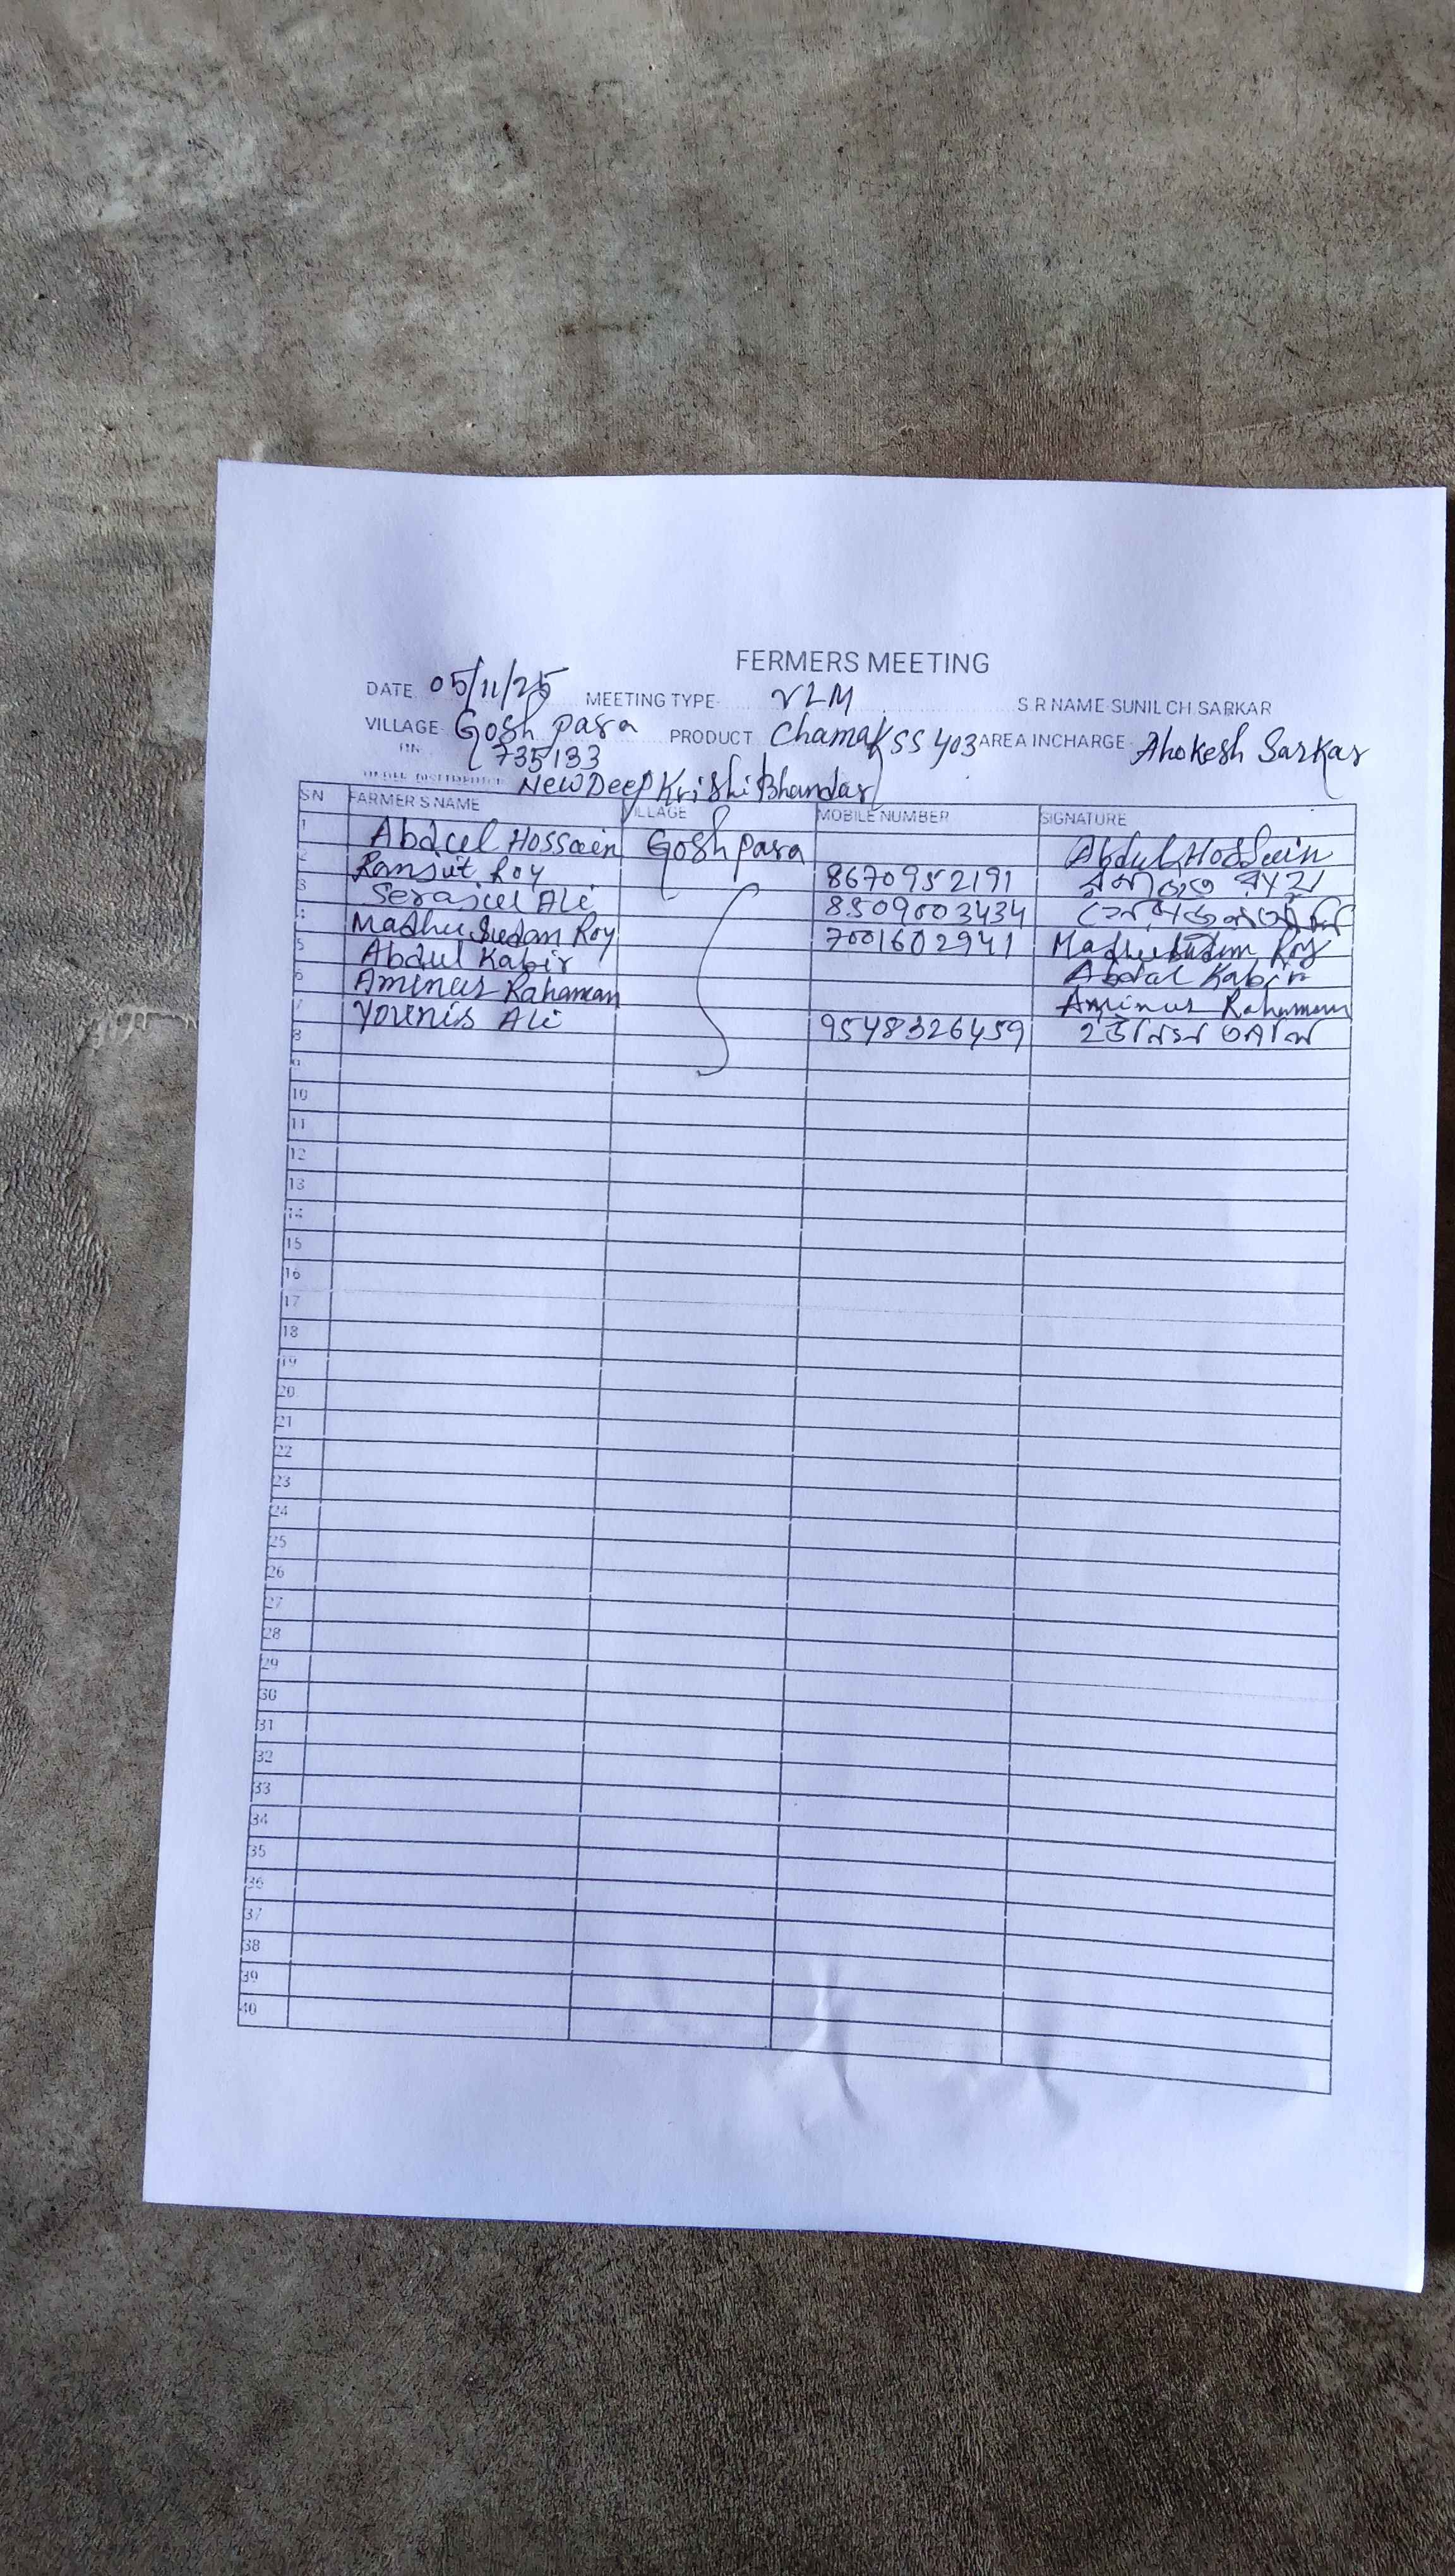 FERMERS MEETING
DATE 05/11/25 MEETING TYPE- VLM S R NAME-SUNIL CH SARKAR
VILLAGE- Gosh para PRODUCT Chamak SS 403 AREA INCHARGE- Ahokesh Sarkar
PIN 735133
New Deep Krishi Bhandar
SN FARMER'S NAME VILLAGE MOBILE NUMBER SIGNATURE
1 Abdul Hossain Gosh para Abdul Hossain
2 Ransit Roy 8670952191
3 Serajul Ali 8509003434
4 Madhu Sudan Roy 7001602941 Madhu Sudan Roy
5 Abdul Kabir Abdul Kabir
6 Aminur Rahaman Aminur Rahaman
7 Younis Ali 9548326459
8
9
10
11
12
13
14
15
16
17
18
19
20
21
22
23
24
25
26
27
28
29
30
31
32
33
34
35
36
37
38
39
40